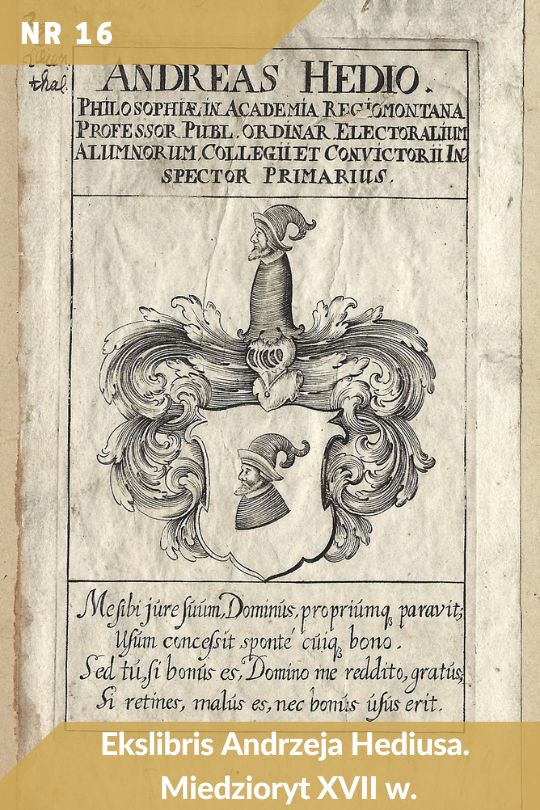 NR 16
thal.
ANDREAS HEDIO.
PHILOSOPHIÆ, IN ACADEMIA REGIOMONTANA
PROFESSOR PUBL. ORDINAR ELECTORALIUM
ALUMNORUM, COLLEGII ET CONVICTORII IN
SPECTOR PRIMARIUS.
Me sibi jure suum, Dominus, propriumq; paravit;
Usum concessit sponte cuiq; bono.
Sed tu, si bonus es, Domino me reddito, gratus;
Si retines, malus es, nec bonus usus erit.
Ekslibris Andrzeja Hediusa.
Miedzioryt XVII w.